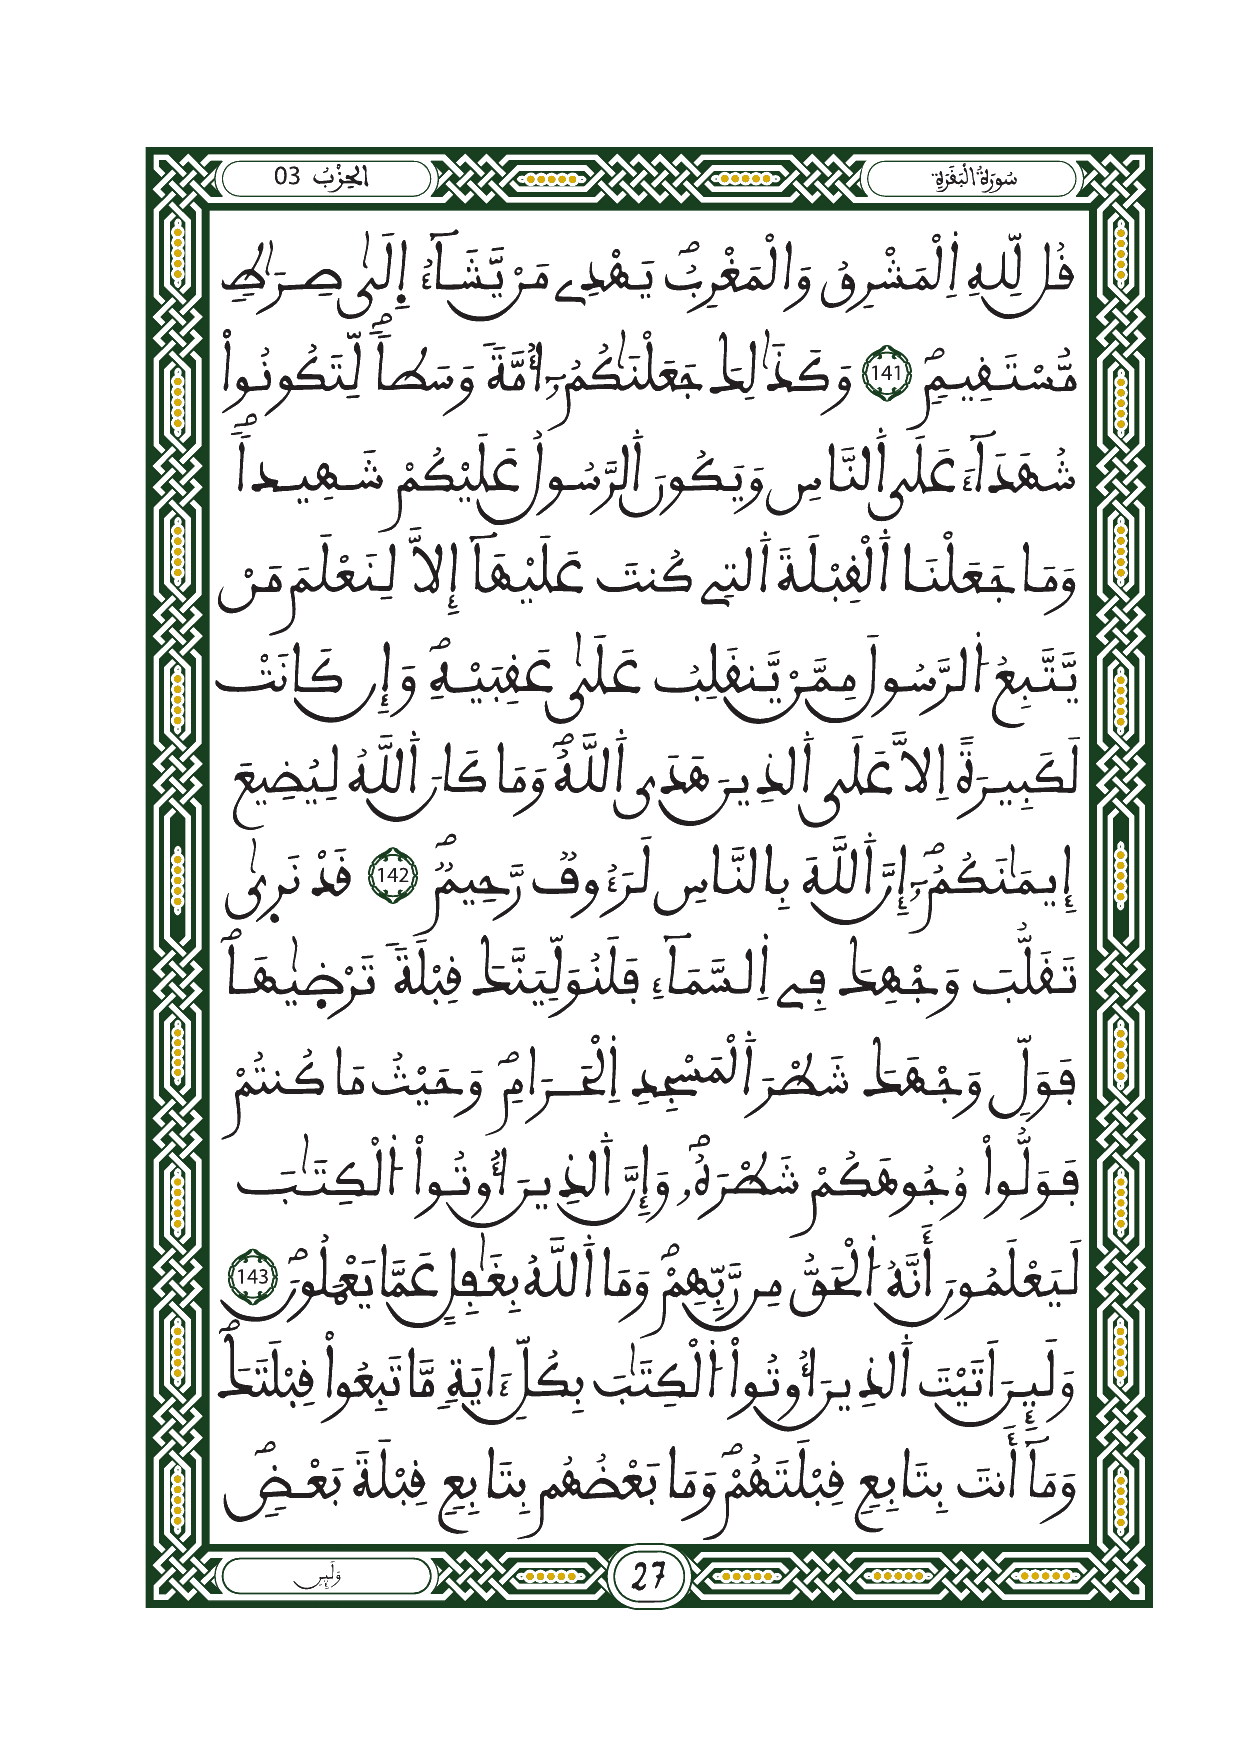 سُورَةُ الْبَقَرَةِ
الحِزْبُ 03
قُل لِّلهِ اِ۬لْمَشْرِقُ وَالْمَغْرِبُۖ يَهْدِے مَنْ يَّشَآءُ اِ۪لَىٰ صِرَٰطٖ
مُّسْتَقِيمٖۖ 141 وَكَذَٰلِكَ جَعَلْنَٰكُمُۥٓ أُمَّةٗ وَسَطاٗۖ لِّتَكُونُواْ
شُهَدَآءَ عَلَى اَ۬لنَّاسِ وَيَكُونَ اَ۬لرَّسُولُ عَلَيْكُمْ شَهِيداٗۖ
وَمَا جَعَلْنَا اَ۬لْقِبْلَةَ اَ۬لتِے كُنتَ عَلَيْهَآ إِلَّا لِنَعْلَمَ مَنْ
يَّتَّبِعُ اُ۬لرَّسُولَ مِمَّنْ يَّنقَلِبُ عَلَىٰ عَقِبَيْهِۖ وَإِن كَانَتْ
لَكَبِيرَةً اِلَّا عَلَى اَ۬لذِينَ هَدَى اَ۬للَّهُۖ وَمَا كَانَ اَ۬للَّهُ لِيُضِيعَ
إِيمَٰنَكُمُۥٓۖ إِنَّ اَ۬للَّهَ بِالنَّاسِ لَرَءُوفٞ رَّحِيمٞۖ 142 قَدْ نَرَىٰ
تَقَلُّبَ وَجْهِكَ فِے اِ۬لسَّمَآءِ فَلَنُوَلِّيَنَّكَ قِبْلَةٗ تَرْضَىٰهَاۖ
فَوَلِّ وَجْهَكَ شَطْرَ اَ۬لْمَسْجِدِ اِ۬لْحَرَامِۖ وَحَيْثُ مَا كُنتُمْ
فَوَلُّواْ وُجُوهَكُمْ شَطْرَهُۥۖ وَإِنَّ اَ۬لذِينَ أُوتُواْ اُ۬لْكِتَٰبَ
لَيَعْلَمُونَ أَنَّهُ اُ۬لْحَقُّ مِن رَّبِّهِمْۖ وَمَا اَ۬للَّهُ بِغَٰفِلٍ عَمَّا يَعْمَلُونَۖ 143
وَلَئِنَ اَتَيْتَ اَ۬لذِينَ أُوتُواْ اُ۬لْكِتَٰبَ بِكُلِّ ءَايَةٖ مَّا تَبِعُواْ قِبْلَتَكَۖ
وَمَآ أَنتَ بِتَابِعٖ قِبْلَتَهُمْۖ وَمَا بَعْضُهُم بِتَابِعٖ قِبْلَةَ بَعْضٖۖ
27
وَلَئِنِ